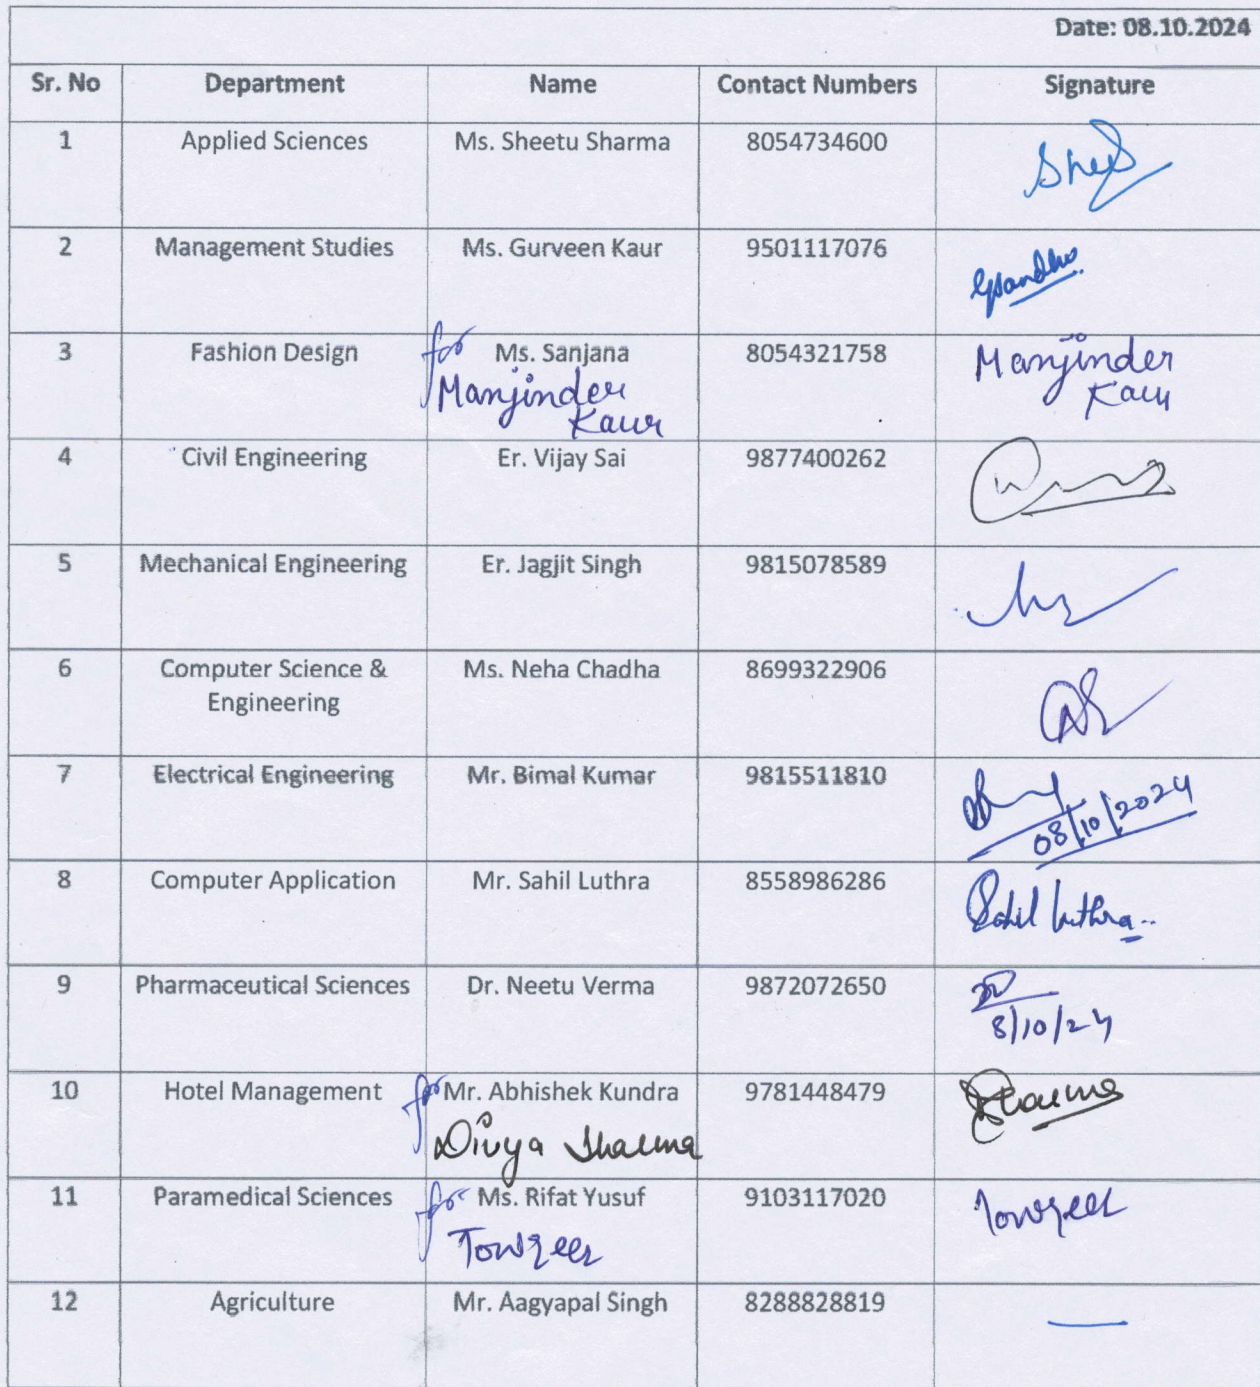 Date: 08.10.2024
Sr. No Department Name Contact Numbers Signature
1 Applied Sciences Ms. Sheetu Sharma 8054734600
2 Management Studies Ms. Gurveen Kaur 9501117076
3 Fashion Design for Ms. Sanjana 8054321758 Manjinder
Manjinder Kaur
Kaur
4 Civil Engineering Er. Vijay Sai 9877400262
5 Mechanical Engineering Er. Jagjit Singh 9815078589
6 Computer Science & Ms. Neha Chadha 8699322906
Engineering
7 Electrical Engineering Mr. Bimal Kumar 9815511810
08/10/2024
8 Computer Application Mr. Sahil Luthra 8558986286
Sahil Luthra
9 Pharmaceutical Sciences Dr. Neetu Verma 9872072650
8/10/24
10 Hotel Management for Mr. Abhishek Kundra 9781448479
Divya Sharma
11 Paramedical Sciences for Ms. Rifat Yusuf 9103117020
12 Agriculture Mr. Aagyapal Singh 8288828819